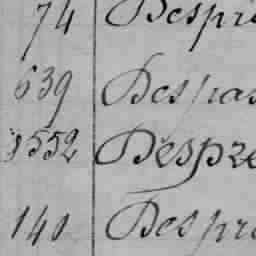 74 Despr
639 Despa
1552 Despre
140 Despr